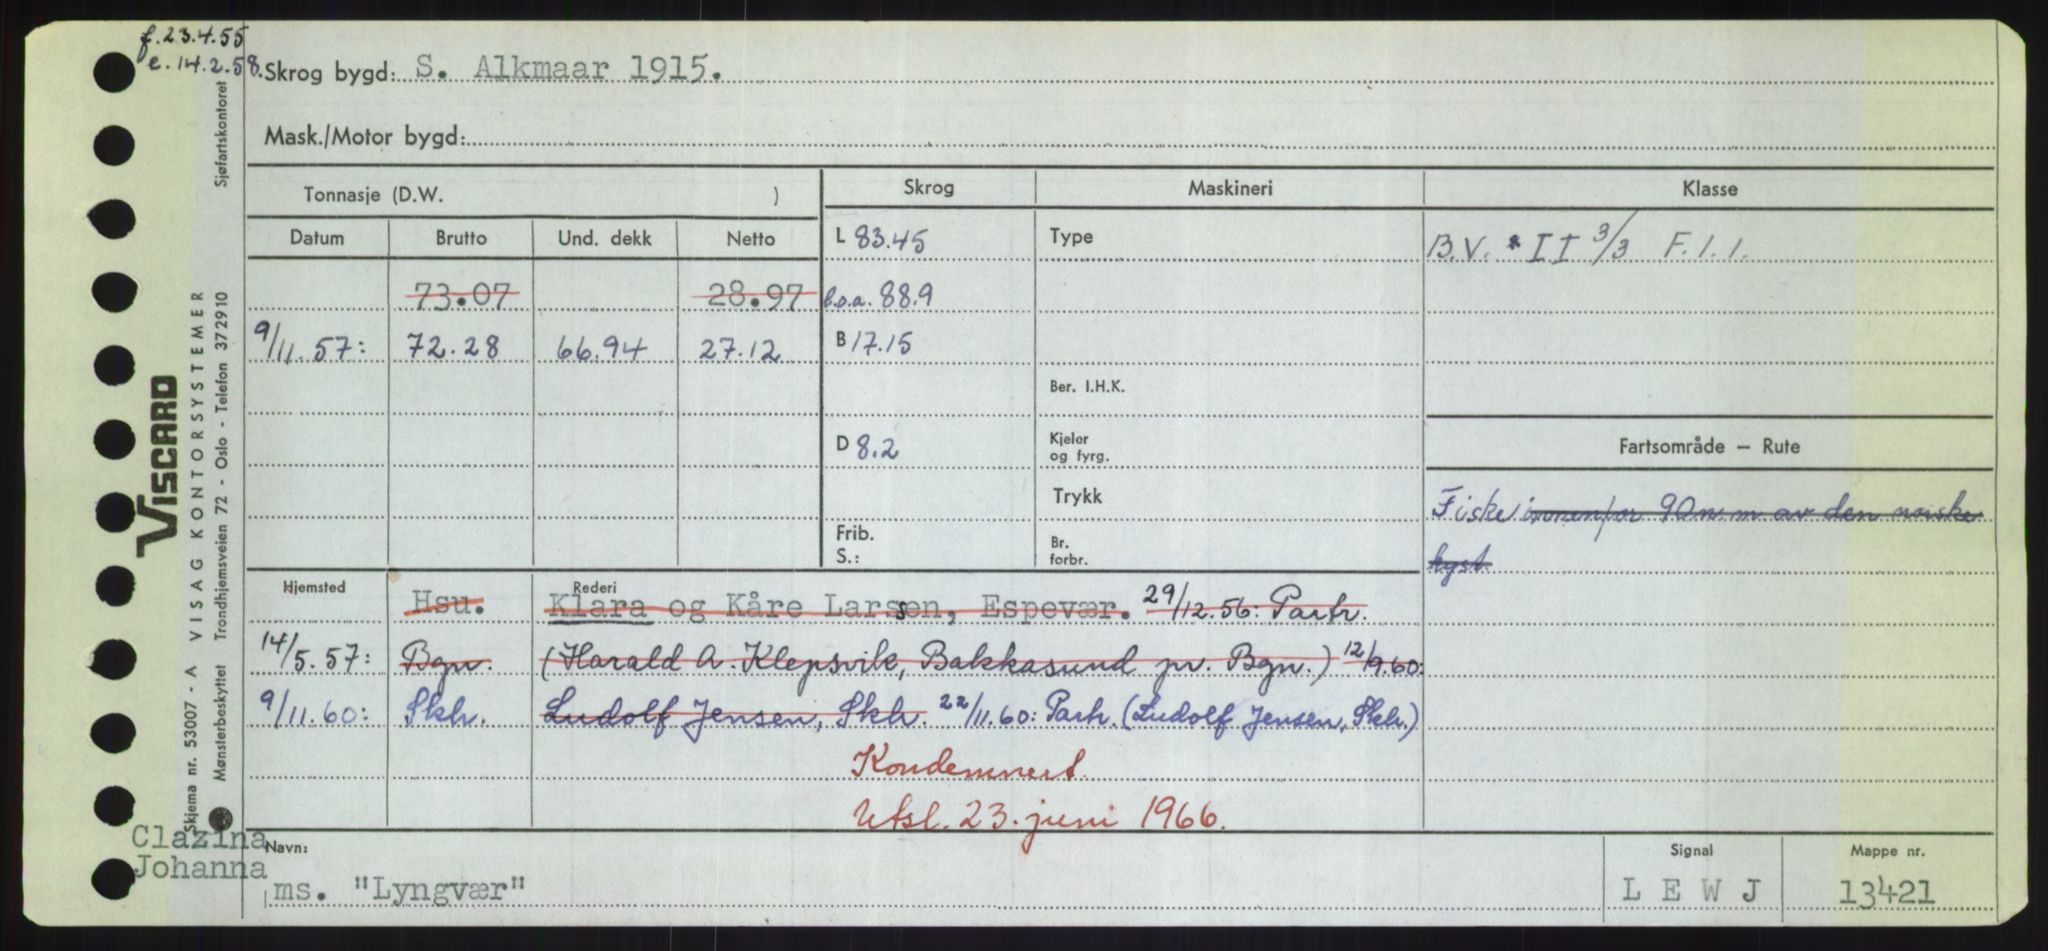 f. 23.4.55
e. 14.2.58.
Skrog bygd: S. Alkmaar 1915.
Mask./Motor bygd:
Tonnasje (D.W. )
Skrog Maskineri Klasse
Datum Brutto Und. dekk Netto L 83.45 Type B.V. * II 3/3 F.1.1.
73.07 28.97 l.o.a. 88.9
9/11.57: 72.28 66.94 27.12 B 17.15
Ber. I.H.K.
D 8.2 Kjeler og fyrg. Fartsområde — Rute
Trykk Fiske innenfor 90 n.m av den norske
Frib. S.: Br. forbr. kyst.
Hjemsted Rederi
Hsu. Klara og Kåre Larssen, Espevær. 29/12.56: Partr.
14/5.57: Bgn. (Harald A. Klepsvik, Bakkasund pr. Bgn.) 12/9.60:
9/11.60: Skh. Ludolf Jensen, Skh. 22/11.60: Partr. (Ludolf Jensen, Skh.)
Kondemnert.
Utsl. 23. juni 1966.
Clazina
Johanna
Navn: Signal Mappe nr.
ms. "Lyngvær" L E W J 13421
VISCARD
Skjema nr. 53007 - A VISAG KONTORSYSTEMER
Mønsterbeskyttet Trondhjemsveien 72 - Oslo - Telefon 372910 Sjøfartskontoret